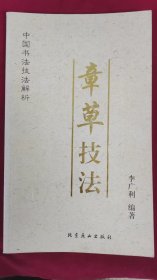 中国书法技法解析
章草技法
李广利 编著
北京燕山出版社